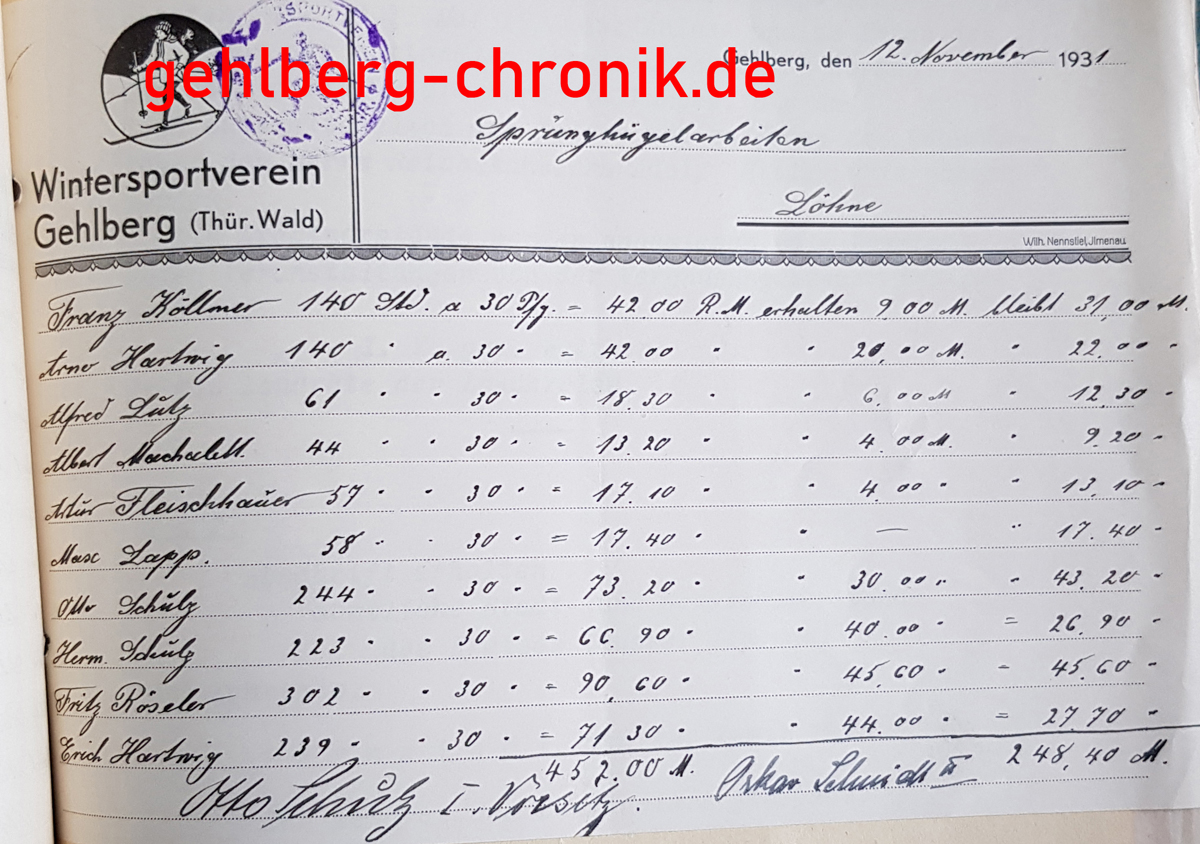 gehlberg-chronik.de
Gehlberg, den 12. November 1931
Sprunghügelarbeiten
Wintersportverein
Gehlberg (Thür. Wald)
Löhne
Wilh. Nennstiel, Jlmenau
Franz Köllmer 140 Std. a 30 Pfg. = 42 00 R.M. erhalten 9,00 M. bleibt 31,00 M.
Arno Hartwig 140 " a. 30 " = 42.00 " " 20,00 M. " 22.00 "
Alfred Lutz 61 " " 30 " = 18.30 " " 6,00 M " 12,30 "
Albert 44 " " 30 " = 13.20 " " 4.00 M. " 9.20 "
Artur Fleischhauer 57 " " 30 " = 17.10 " " 4,00 " " 13,10 "
Max Lapp. 58 " " 30 " = 17.40 " " — " 17.40 "
Otto Schulz 244 " " 30 " = 73.20 " " 30.00 " " 43.20 "
Herm. Schulz 223 " " 30 " = 66.90 " " 40.00 " = 26.90 "
Fritz Röseler 302 " " 30 " = 90,60 " " 45,60 " = 45.60 "
Erich Hartwig 239 " " 30 " = 71 30 " " 44.00 " = 27.70 "
452,00 M. 248,40 M.
Otto Schulz I. Vorsitz. Oskar Schmidt II